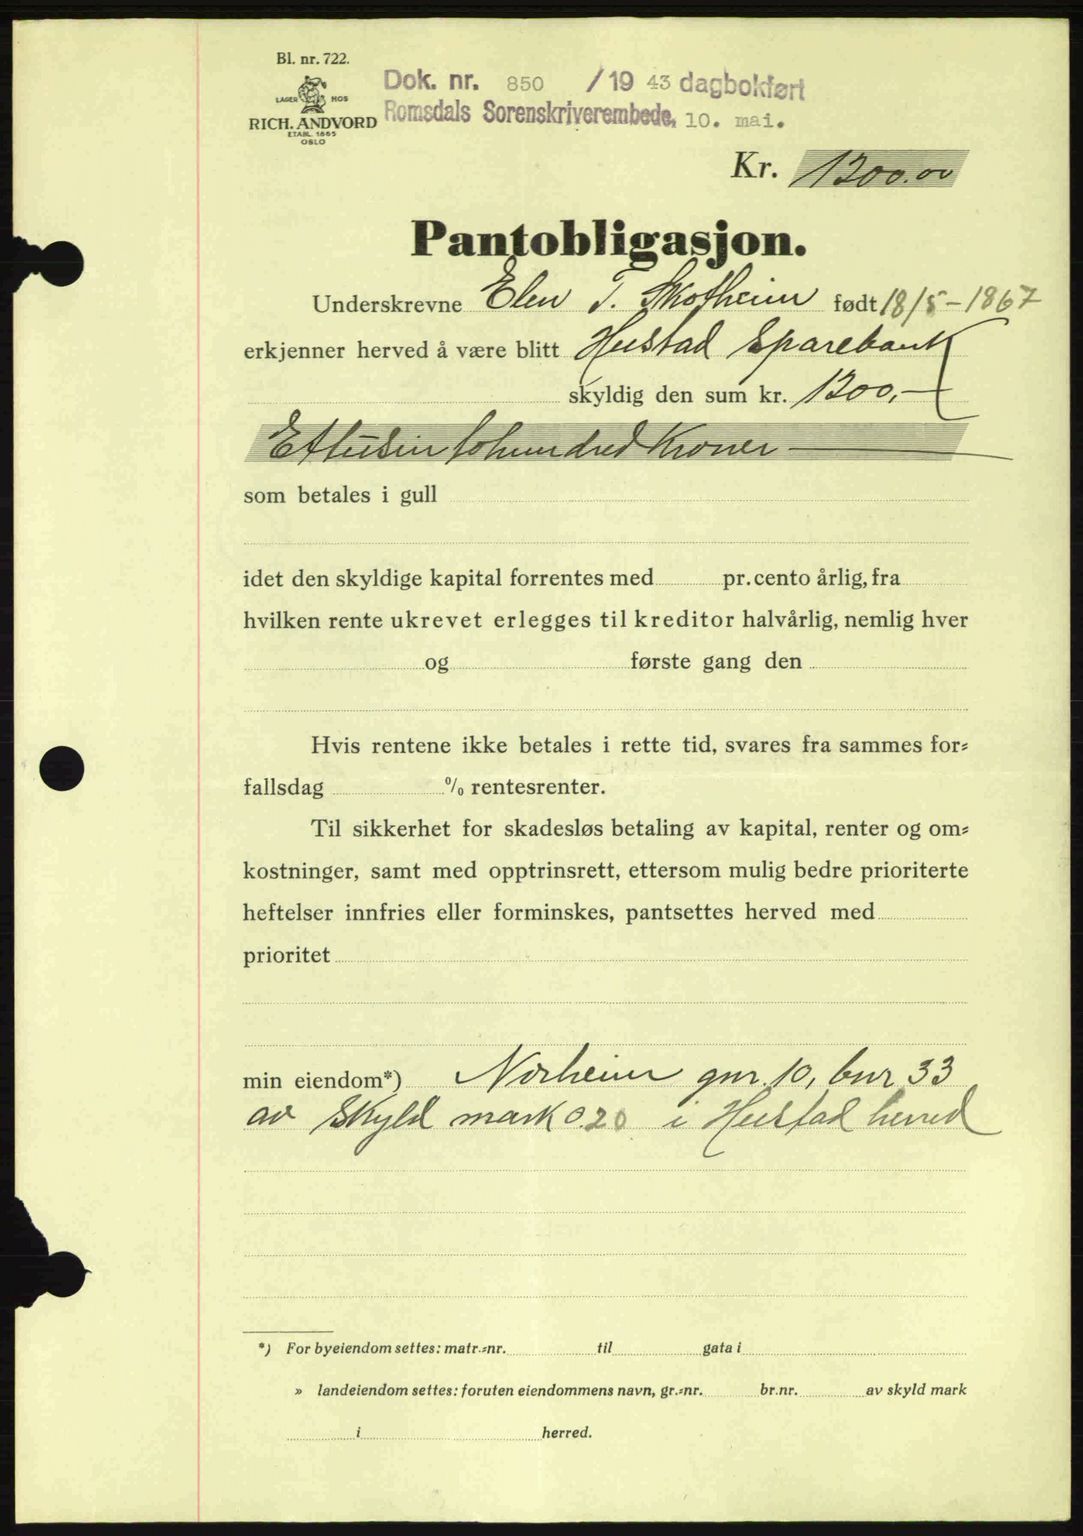 Bl. nr. 722.
LAGER HOS
RICH. ANDVORD
ETABL. 1865
OSLO
Dok. nr. 850 /19 43 dagbokført
Romsdals Sorenskriverembede, 10. mai.
Kr. 1200.00
Pantobligasjon.
Underskrevne Elen T. Skotheim født 18/5-1867
erkjenner herved å være blitt Hustad Sparebank
skyldig den sum kr. 1200,-
Ettusin tohundred Kroner
som betales i gull
idet den skyldige kapital forrentes med pr. cento årlig, fra
hvilken rente ukrevet erlegges til kreditor halvårlig, nemlig hver
og første gang den
Hvis rentene ikke betales i rette tid, svares fra sammes for=
fallsdag % rentesrenter.
Til sikkerhet for skadesløs betaling av kapital, renter og om=
kostninger, samt med opptrinsrett, ettersom mulig bedre prioriterte
heftelser innfries eller forminskes, pantsettes herved med
prioritet
min eiendom*) Norheim gnr. 10, bnr 33
av Skyld mark 0.20 i Hustad herred
*) For byeiendom settes: matr.=nr. til gata i
» landeiendom settes: foruten eiendommens navn, gr.=nr. br.nr. av skyld mark
i herred.